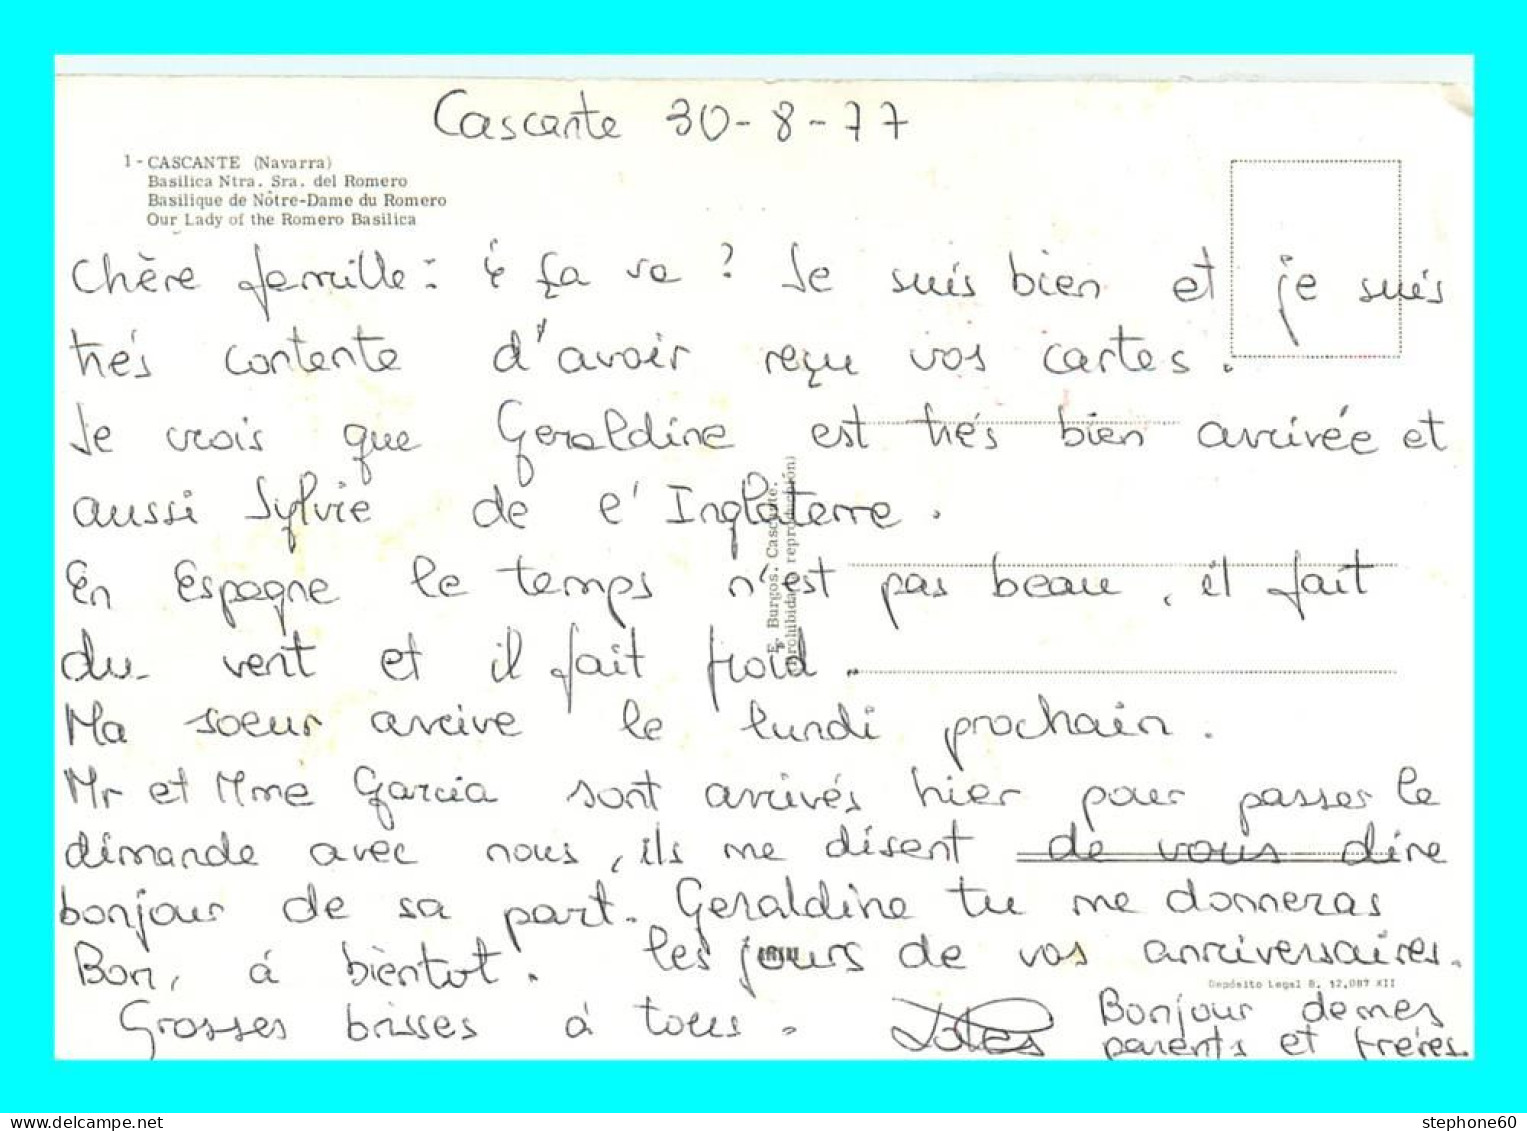 Cascante 30-8-77
1 - CASCANTE (Navarra)
Basilica Ntra. Sra. del Romero
Basilique de Nôtre-Dame du Romero
Our Lady of the Romero Basilica
Chère famille: ça va? Je suis bien et je suis
trés contente d'avoir reçu vos cartes.
Je vrois que Geraldine est trés bien arrivée et
aussi Sylvie de l'Inglaterre.
En Espagne le temps n'est pas beau, il fait
du vent et il fait froid.
Ma soeur arrive le lundi prochain.
Mr et Mme Garcia sont arrivés hier pour passer le
dimande avec nous, ils me disent de vous dire
bonjour de sa part. Geraldine tu me donneras
les jours de vos anniversaires.
Bon, á bièntot.
Grosses brisses á tous.
Bonjour de mes
parents et fréres.
E. Burgos. Cascante.
(Prohibida la reproducción)
Depósito Legal B. 12.087 XII
stephone60